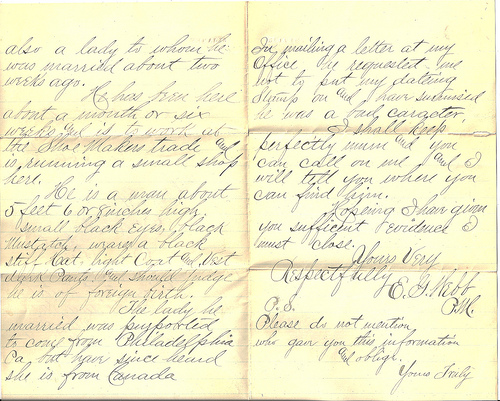 also a lady to whom he
was married about two
weeks ago.
He has been here
about a month or six
weeks and is to work at
the Shoe Makers trade and
is running a small shop
here.
He is a man about
5 feet 6 or 8 inches high
small black eyes, black
Mustach, wears a black
stiff Hat. light Coat and Vest
dark Pants, and should judge
he is of foreign birth.
The lady he
married was purported
to come from Philadelphia
Pa, but have since heard
she is from Canada
In mailing a letter at my
Office he requested me
not to put my dating
Stamp on and I have surmised
he was a bad caracter.
I shall keep
perfectly mum and you
can call on me and I
will tell you where you
can find him.
Hopeing I have given
you sufficient evidence I
must close.
Yours Very
Respectfully
E. G. Webb
P.M.
P.S.
Please do not mention
who gave you this information
and oblige.
Yours Truly